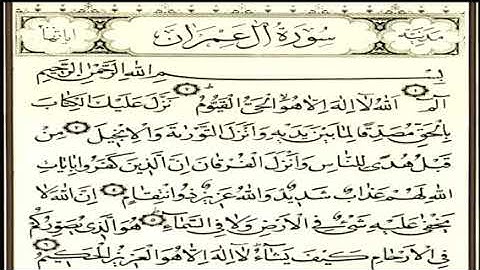 مدنية سُورَةُ اٰلِ عِمْرَان اياتها
بِسْمِ اللهِ الرَّحْمٰنِ الرَّحِيمِ
الٓمٓ اَللهُ لَا اِلٰهَ اِلَّا هُوَ الْحَىُّ الْقَيُّومُ نَزَّلَ عَلَيْكَ الْكِتَابَ
بِالْحَقِّ مُصَدِّقًا لِمَا بَيْنَ يَدَيْهِ وَاَنْزَلَ التَّوْرٰيةَ وَالْاِنْجِيلَ مِنْ
قَبْلُ هُدًى لِلنَّاسِ وَاَنْزَلَ الْفُرْقَانَ اِنَّ الَّذِينَ كَفَرُوا بِاٰيَاتِ
اللهِ لَهُمْ عَذَابٌ شَدِيدٌ وَاللهُ عَزِيزٌ ذُو انْتِقَامٍ اِنَّ اللهَ لَا
يَخْفٰى عَلَيْهِ شَىْءٌ فِى الْاَرْضِ وَلَا فِى السَّمَاءِ هُوَ الَّذِى يُصَوِّرُكُمْ
فِى الْاَرْحَامِ كَيْفَ يَشَاءُ لَا اِلٰهَ اِلَّا هُوَ الْعَزِيزُ الْحَكِيمُ